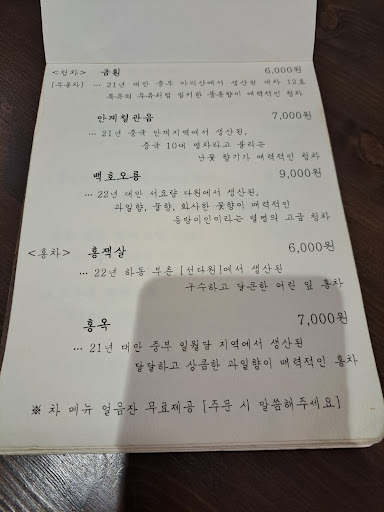 <청차> 금훤 6,000원
[우롱차] ... 21년 대만 중부 아리산에서 생산된 대차 12호
특유의 우유처럼 밀키한 풀꽃향이 매력적인 청차
안계철관음 7,000원
... 21년 중국 안계지역에서 생산된,
중국 10대 명차라고 불리는
난꽃 향기가 매력적인 청차
백호오룡 9,000원
... 22년 대만 서요량 다원에서 생산된,
과일향, 꿀향, 화사한 꽃향이 매력적인
동방미인이라는 별명의 고급 청차
<홍차> 홍잭살 6,000원
... 22년 하동 부춘 [선다원]에서 생산된
구수하고 달큰한 어린 잎 홍차
홍옥 7,000원
... 21년 대만 중부 일월담 지역에서 생산된
달달하고 상큼한 과일향이 매력적인 홍차
※ 차 메뉴 얼음잔 무료제공 [주문 시 말씀해주세요]